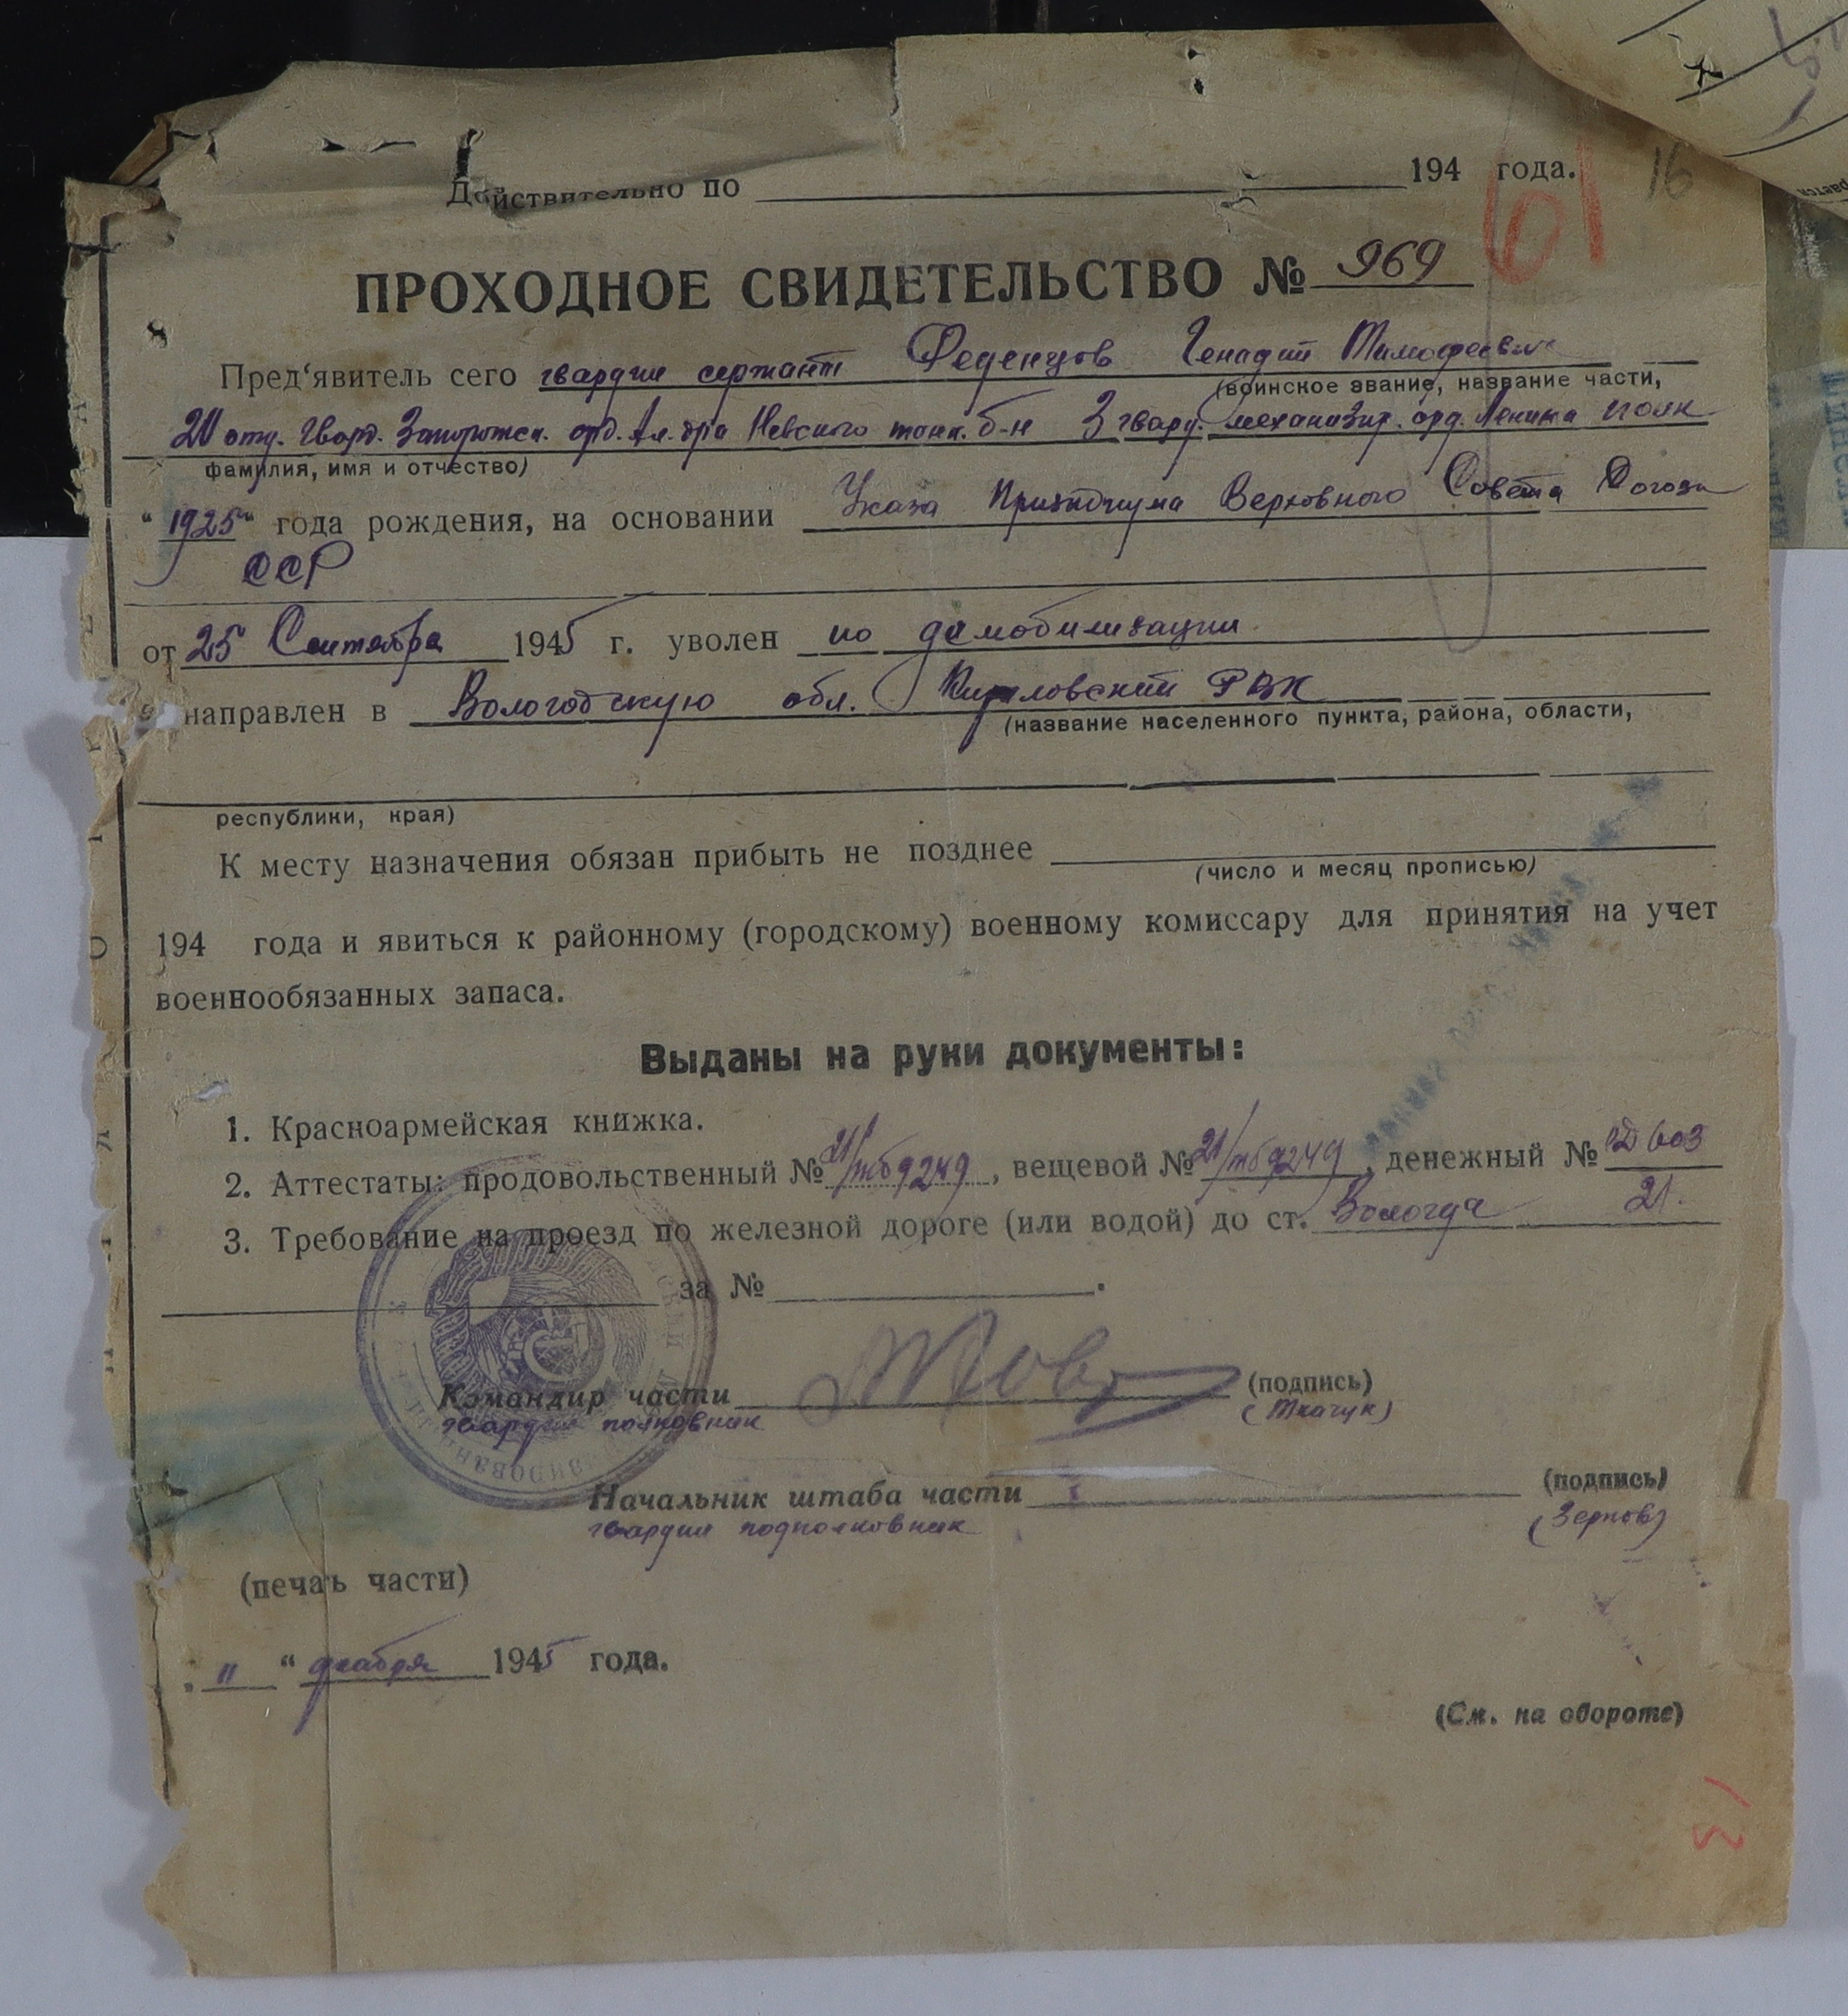 Действительно по 194 года.
61 16
ПРОХОДНОЕ СВИДЕТЕЛЬСТВО № 969
Пред'явитель сего гвардии сержант Феденцов Генадий Тимофеевич
(воинское звание, название части,
20 отд. Гвард. Запорожск. орд. Ал-дра Невского танк. б-н 3 гвард. механизир. орд. Ленина полк
фамилия, имя и отчество)
"1925" года рождения, на основании Указа Призидиума Верховного Совета Союза
ССР
от 25 Сентября 1945 г. уволен по демобилизации
направлен в Вологодскую обл. Кириловский РВК
(название населенного пункта, района, области,
республики, края)
К месту назначения обязан прибыть не позднее
(число и месяц прописью)
194 года и явиться к районному (городскому) военному комиссару для принятия на учет
военнообязанных запаса.
Выданы на руки документы:
1. Красноармейская книжка.
2. Аттестаты: продовольственный № 21/тб9249, вещевой № 21/тб9249, денежный № 603
3. Требование на проезд по железной дороге (или водой) до ст. Вологда 21.
за № .
Командир части (подпись)
гвардии полковник (Ткачук)
Начальник штаба части (подпись)
гвардии подполковник (Зернов)
(печать части)
„ 11 “ декабря 1945 года.
(См. на обороте)